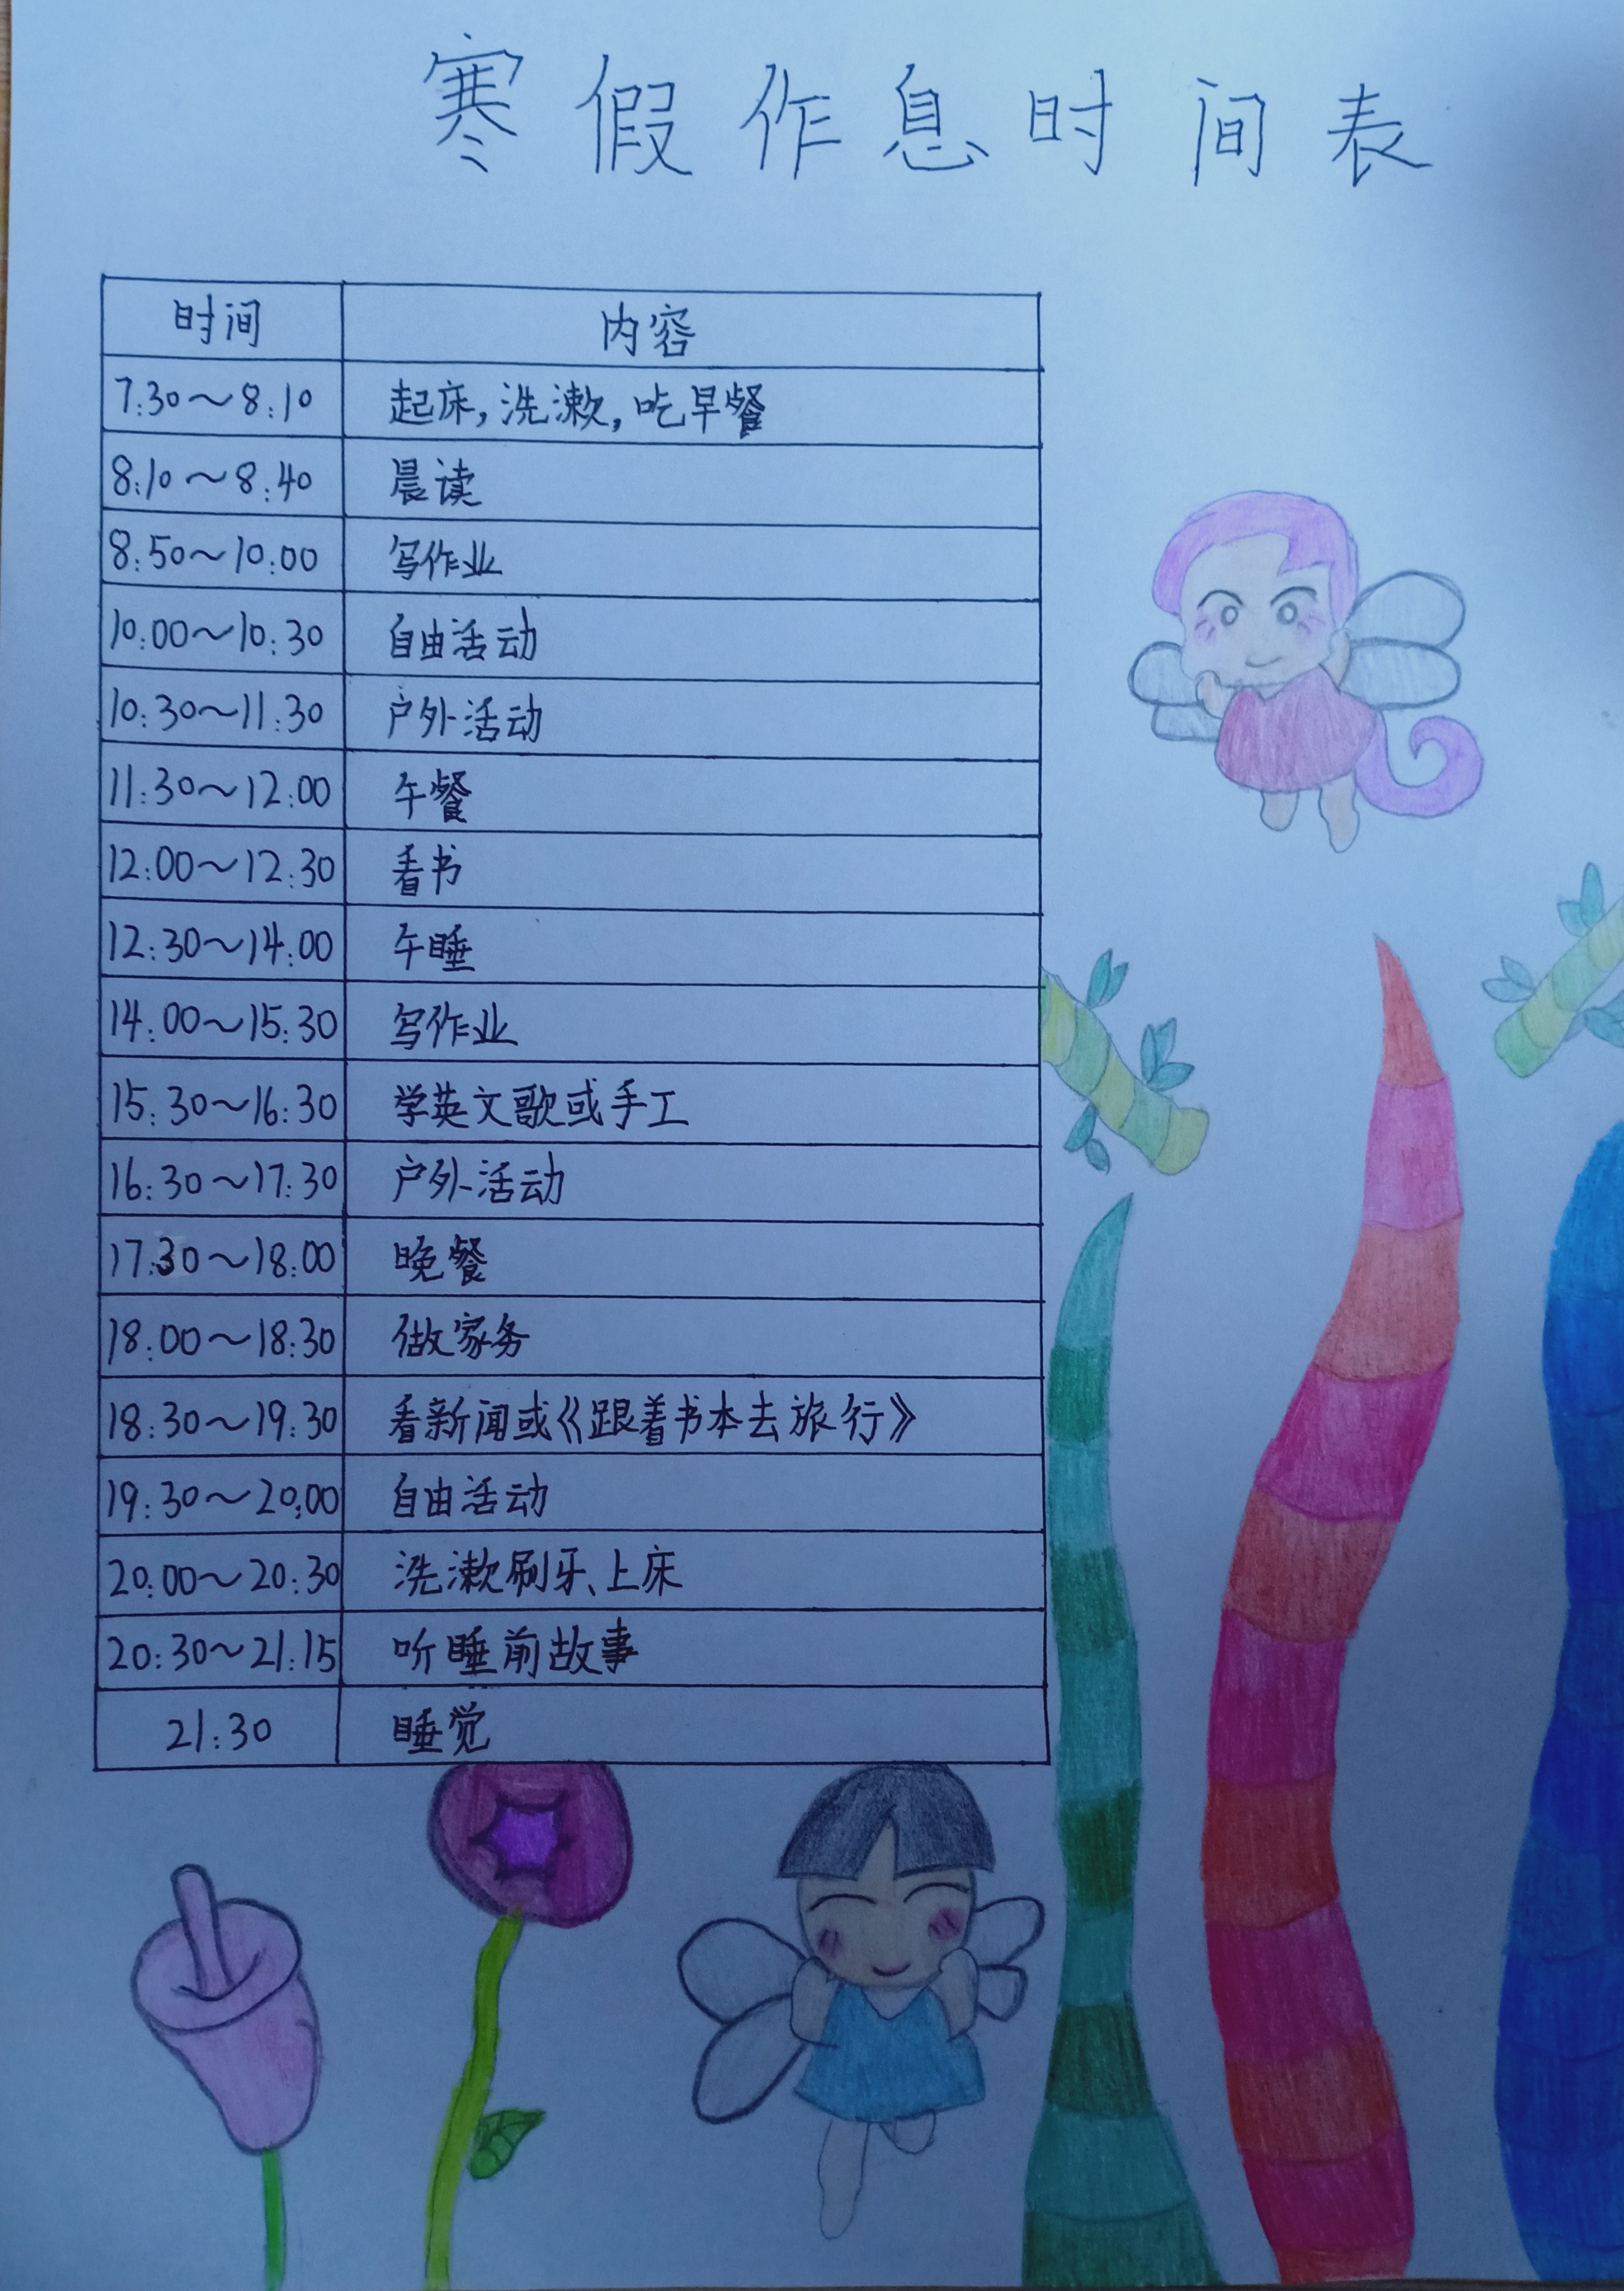 寒假作息时间表
时间 内容
7:30～8:10 起床,洗漱,吃早餐
8:10～8:40 晨读
8:50～10:00 写作业
10:00～10:30 自由活动
10:30～11:30 户外活动
11:30～12:00 午餐
12:00～12:30 看书
12:30～14:00 午睡
14:00～15:30 写作业
15:30～16:30 学英文歌或手工
16:30～17:30 户外活动
17:30～18:00 晚餐
18:00～18:30 做家务
18:30～19:30 看新闻或《跟着书本去旅行》
19:30～20:00 自由活动
20:00～20:30 洗漱刷牙、上床
20:30～21:15 听睡前故事
21:30 睡觉